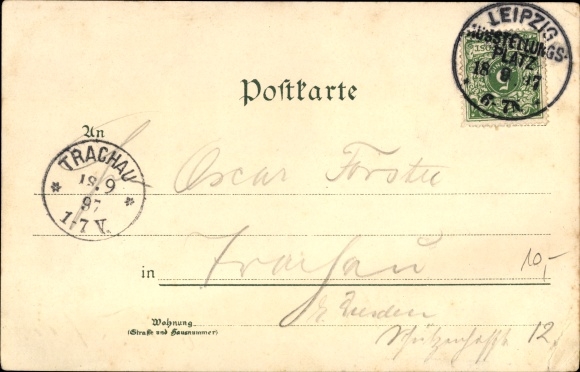 LEIPZIG
AUSSTELLUNGS-
PLATZ
18 9 97
6-7N.
Postkarte
An
TRACHAU
19.9
97
1-7 V.
Oscar Förster
in Trachau
10,-
Dresden
Wohnung
(Straße und Hausnummer)
12.